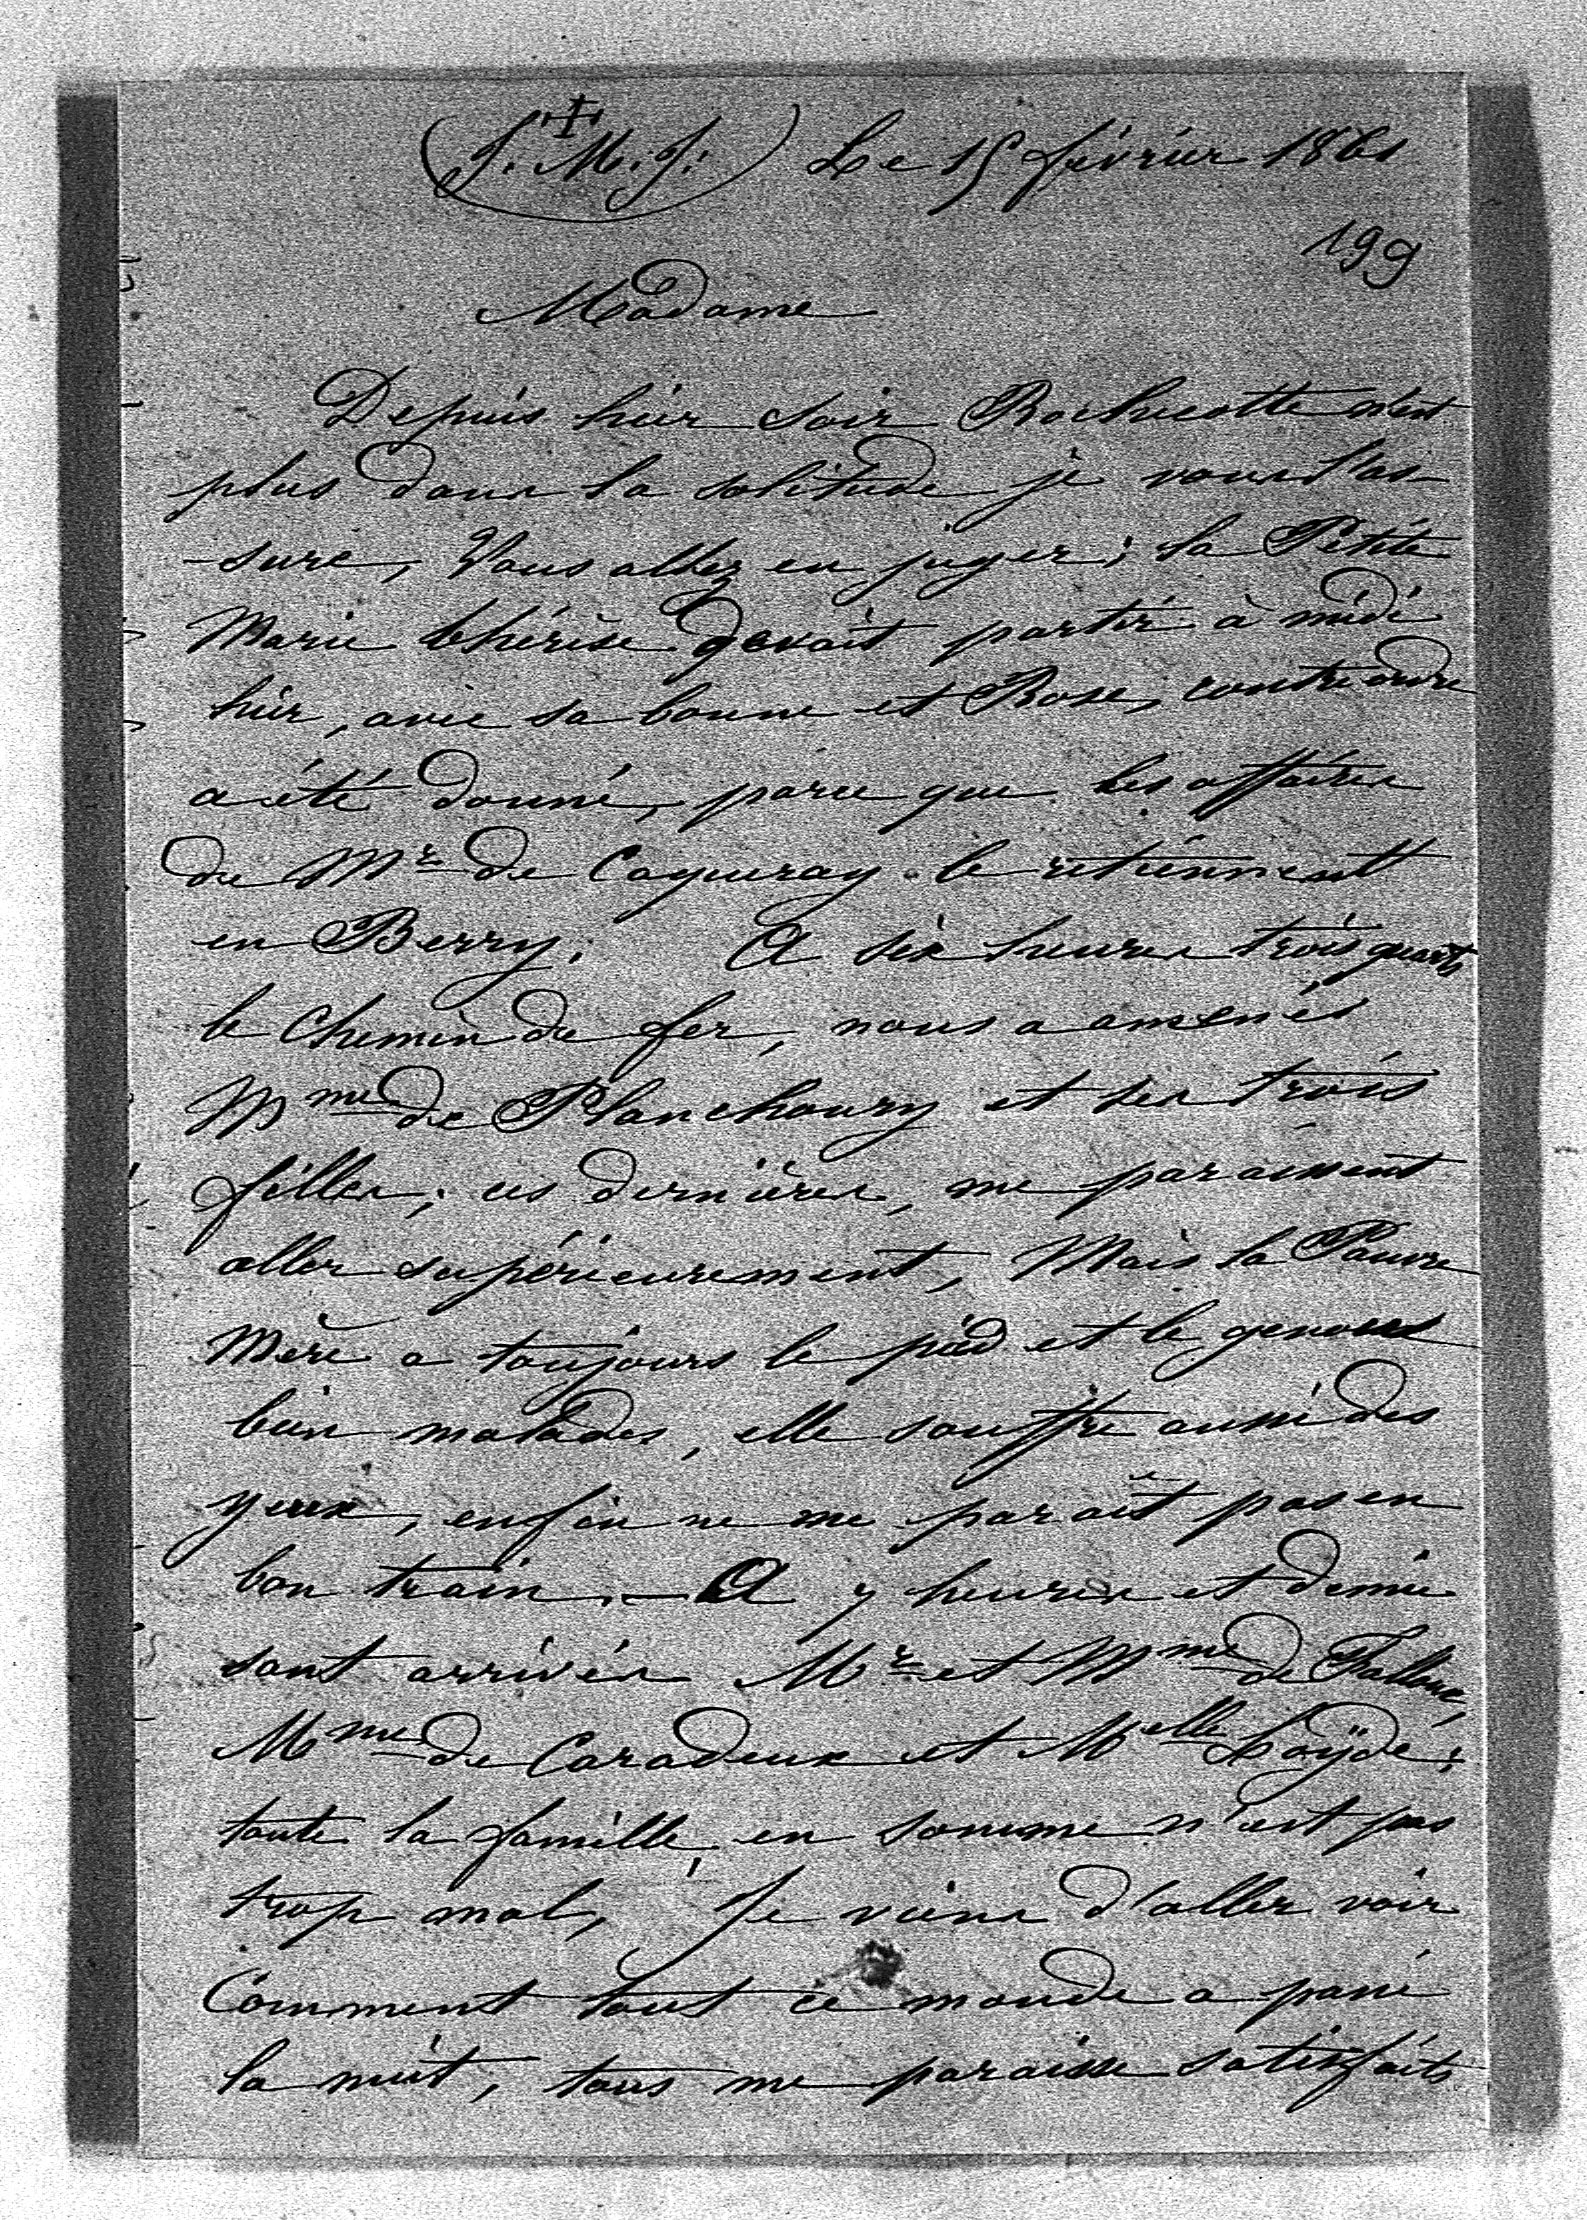 J. M. J. Le 15 février 1861
199
Madame
Depuis hier soir Rochecotte n'est
plus dans la solitude je vous l'as-
-sure, Vous allez en juger; la Petite
Marie thérèse devait partir à midi
hier, avec sa bonne et Rose, contre ordre
a été donné, parce que les affaires
de Mr de Coqueray le retiennent
en Berry. A six heures trois quarts
le Chemin de fer, nous a amenés
Mme de Planchoury et ses trois
filles; ces dernières, me paraissent
aller supérieurement, Mais la Pauvre
Mère a toujours le pied et le genoux
bien malades, elle souffre aussi des
yeux, enfin ne me paraît pas en
bon train. — A 7 heures et demie
sont arrivés Mr et Mme de Falloux,
Mme de Caradeux et Melle Loÿde;
toute la famille, en somme n'est pas
trop mal, Je viens d'aller voir
Comment tout ce monde a passé
la nuit, tous me paraisse satisfaits